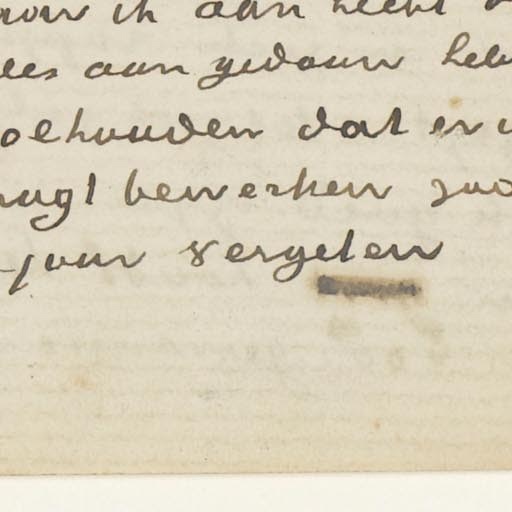 ik aan heebt
aan gedaan heb
oehouden dat er
mugt bewerken zoo
jour vergeten